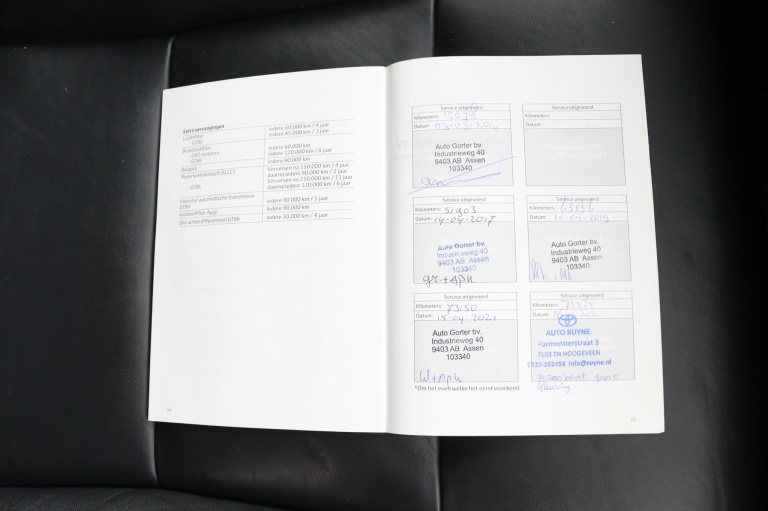 Extra vervangingen
Luchtfilter iedere 60.000 km / 4 jaar
- GT86 iedere 45.000 km / 3 jaar
Brandstoffilter
- D4D motoren iedere 60.000 km
iedere 120.000 km / 8 jaar
- GT86 iedere 90.000 km
Bougies
Verversen na 150.000 km / 4 jaar,
daarna iedere 90.000 km / 2 jaar
Verversen na 210.000 km / 11 jaar
- GT86 daarna iedere 120.000 km / 6 jaar
Vloeistof automatische transmissie
GT86 iedere 90.000 km / 5 jaar
Koolstoffilter Aygo iedere 90.000 km
Olie achterdifferentieel GT86 iedere 30.000 km / 4 jaar
24
Service uitgevoerd
Kilometers:
Datum:
Auto Gorter bv.
Industrieweg 40
9403 AB Assen
103340
Service uitgevoerd
Kilometers:
Datum:
Service uitgevoerd
Kilometers: 51903
Datum: 14-04-2017
Auto Gorter bv.
Industrieweg 40
9403 AB Assen
103340
gr+Aph
Service uitgevoerd
Kilometers: 63836
Datum:
Auto Gorter bv.
Industrieweg 40
9403 AB Assen
103340
Service uitgevoerd
Kilometers:
Datum: 15-04-2021
Auto Gorter bv.
Industrieweg 40
9403 AB Assen
103340
Service uitgevoerd
Kilometers:
Datum:
AUTO RUYNE
Parmentierstraat 3
7903 TN HOOGEVEEN
0528-262458 info@ruyne.nl
*Om het even welke het eerst voorkomt
25